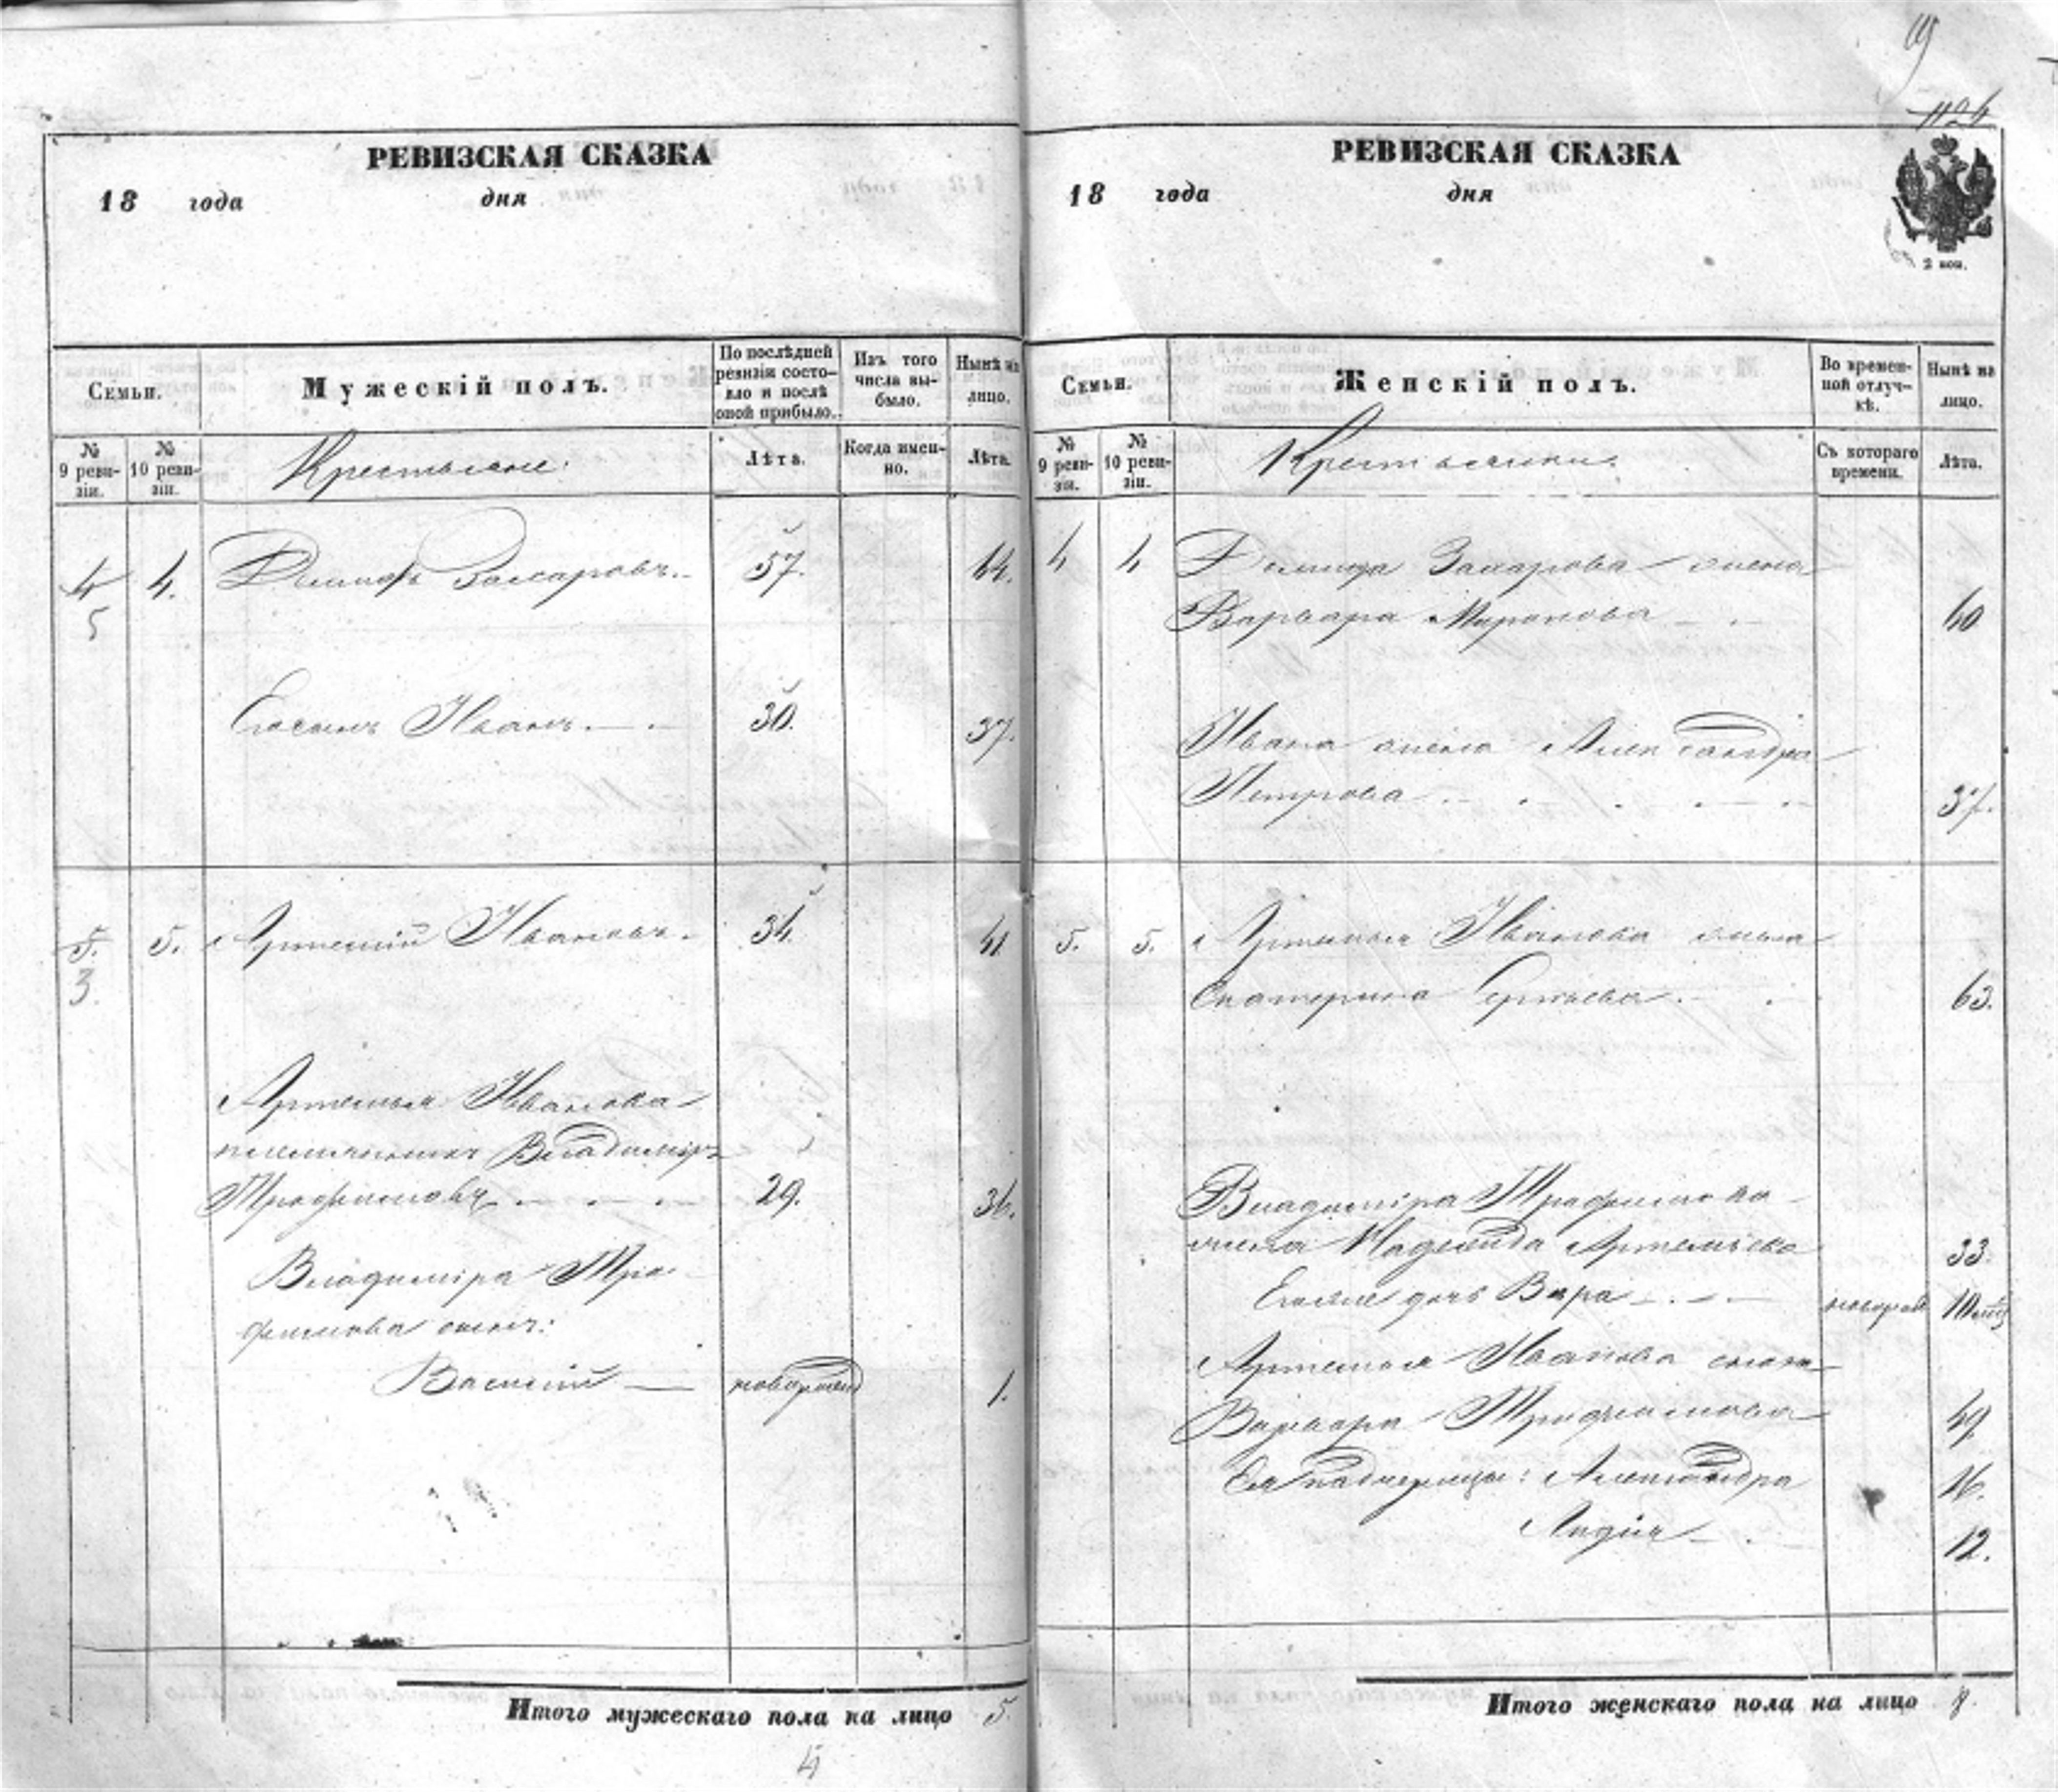 19
1126
РЕВИЗСКАЯ СКАЗКА
18 года дня
Семьи.
Мужескій полъ.
По послѣдней ревизіи состояло и послѣ оной прибыло.
Изъ того числа выбыло.
Нынѣ на лицо.
№ 9 ревизіи.
№ 10 ревизіи.
Крестьяне:
Лѣта.
Когда именно.
Лѣта.
4 4. Захаровъ. 57. 64.
5
Его сынъ Иванъ. 30. 37.
5. 5. Артемій Ивановъ. 34. 41
3.
Артемья Иванова
племянникъ Владиміръ
Трофимовъ 29. 36.
Владиміра Тро-
фимова сынъ:
Василій новорожд 1.
Итого мужескаго пола на лицо 5.
4
РЕВИЗСКАЯ СКАЗКА
18 года дня
2 коп.
Семьи.
Женскій полъ.
Во временной отлучкѣ.
Нынѣ на лицо.
№ 9 ревизіи.
№ 10 ревизіи.
Крестьянки.
Съ котораго времени.
Лѣта.
4 4 Захарова жена
Варвара Миронова 60
Ивана жена Александра
Петрова 37.
5. 5. Артемья Иванова
Екатерина Сергѣева 63.
Владиміра Трофимова
жена Надежда Артемьева 33.
Его же дочь Вѣра новорож 10 мѣс
Артемья Иванова
Варвара Трофимова 49
Ея падчерицы: Александра 16.
Лидія 12.
Итого женскаго пола на лицо 8.